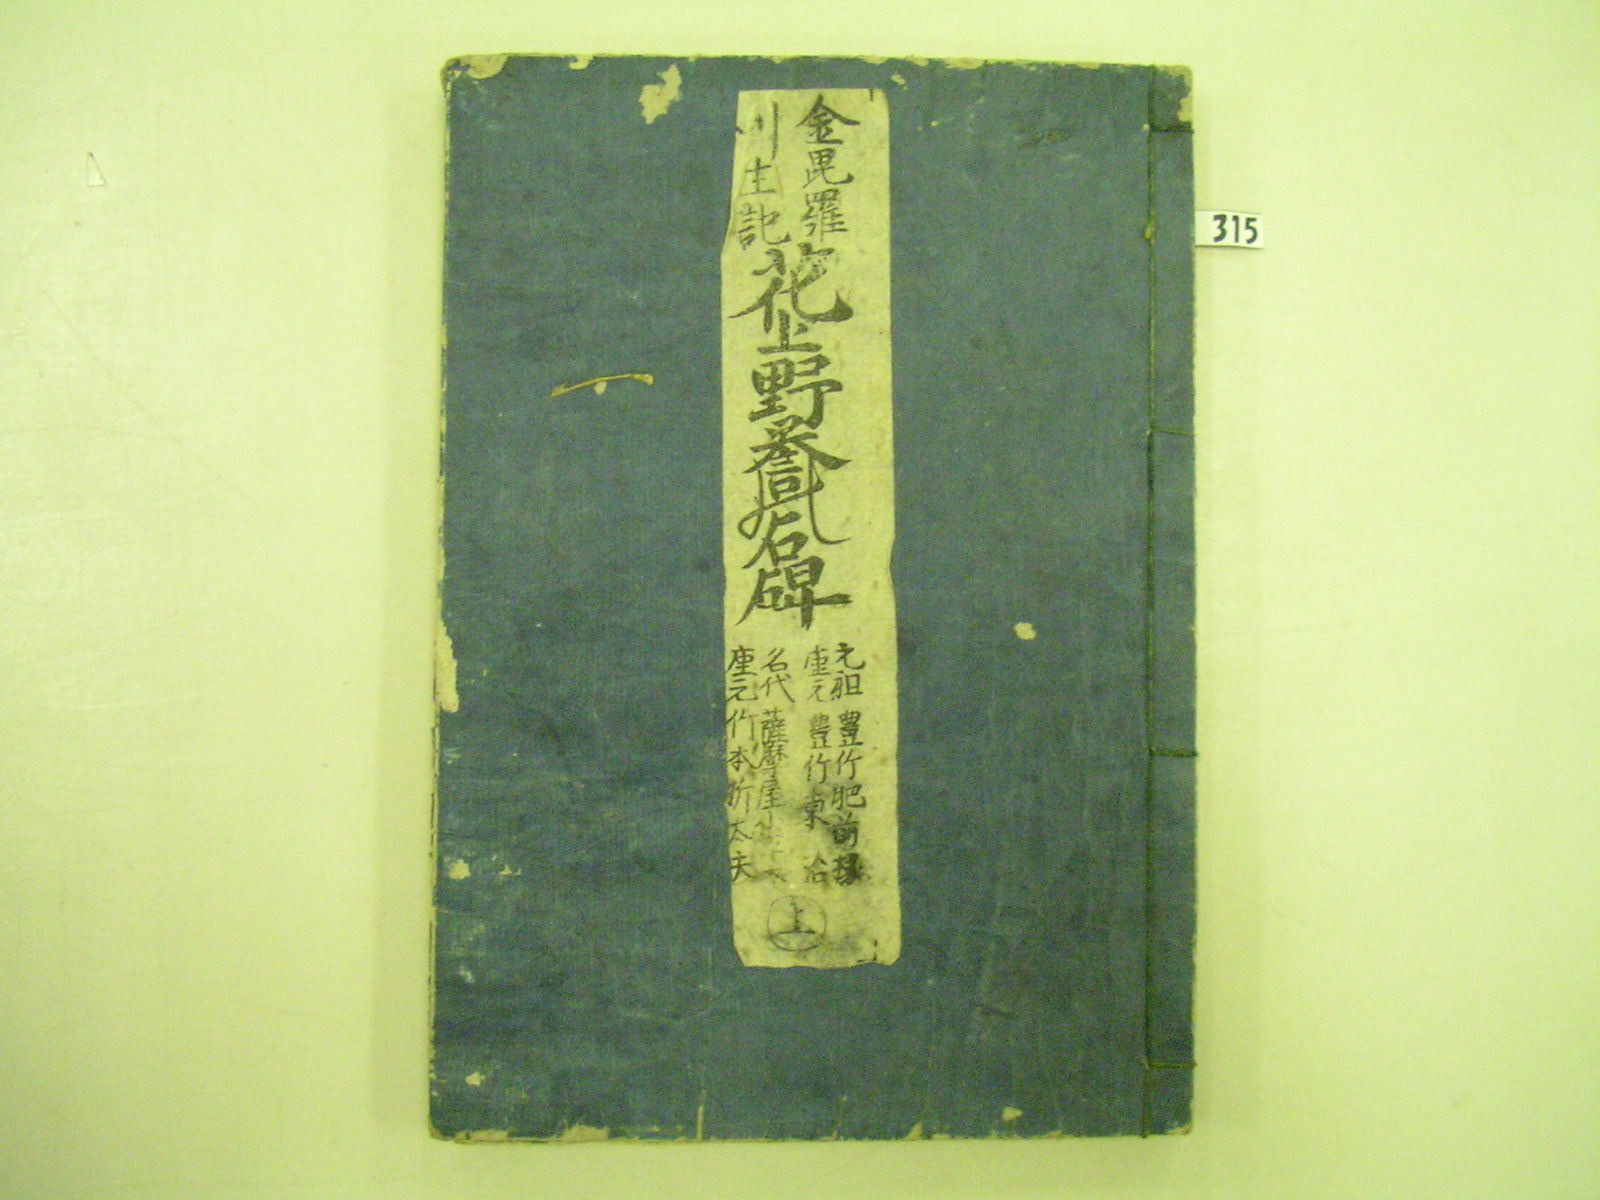 金毘羅
利生記
花上野誉石碑
元祖 豊竹肥前掾
座元 豊竹東治
名代 薩摩屋
座元 竹本折太夫
上
315